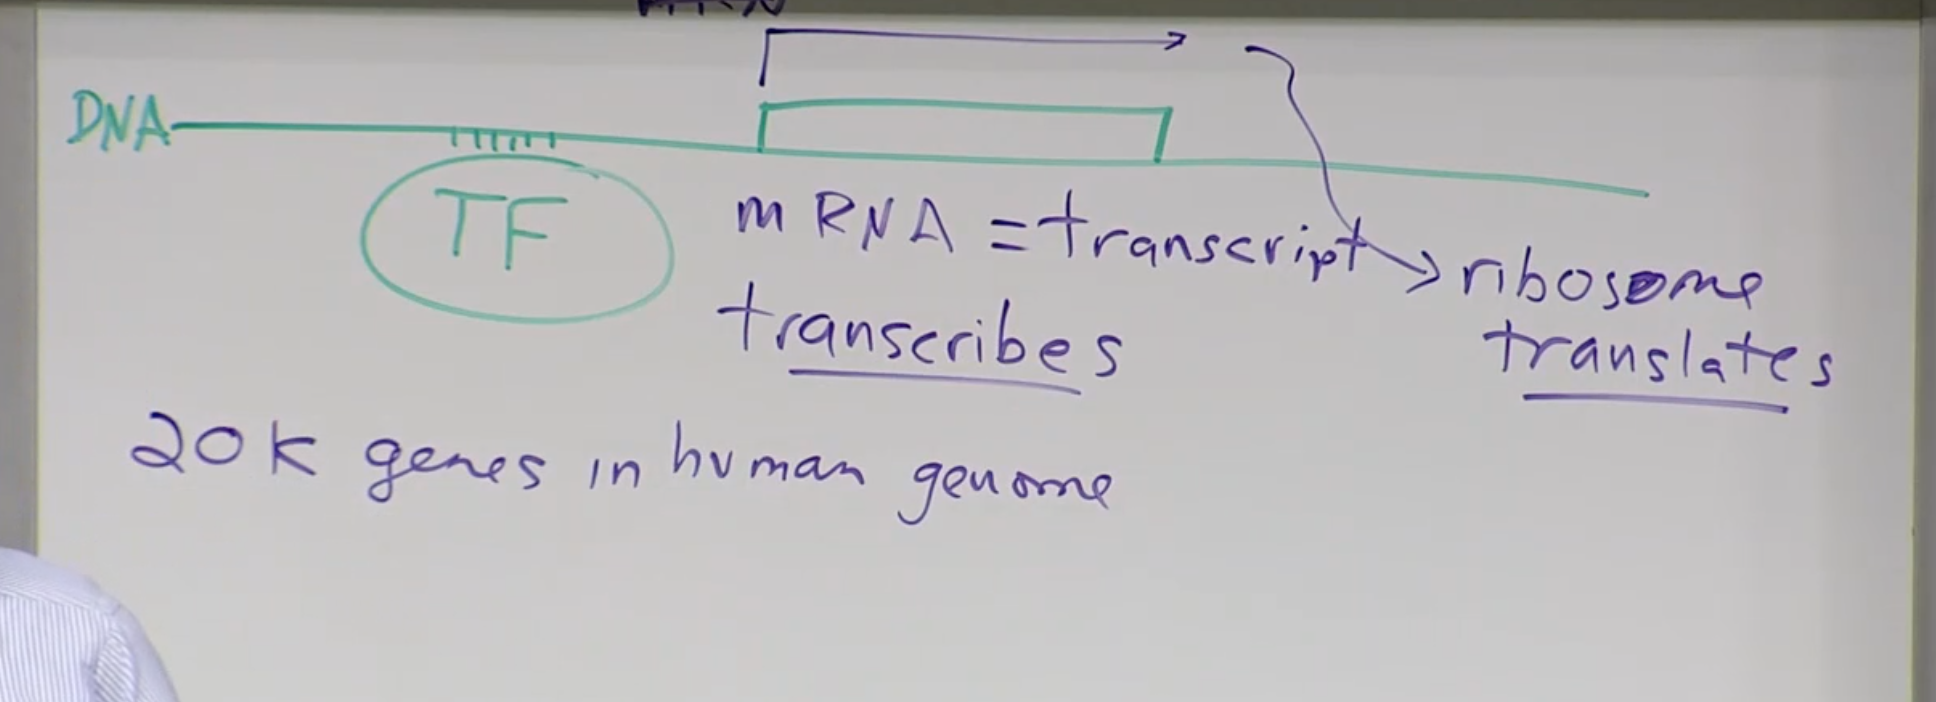 DNA
TF
mRNA = transcript → ribosome
transcribes
translates
20K genes in human genome